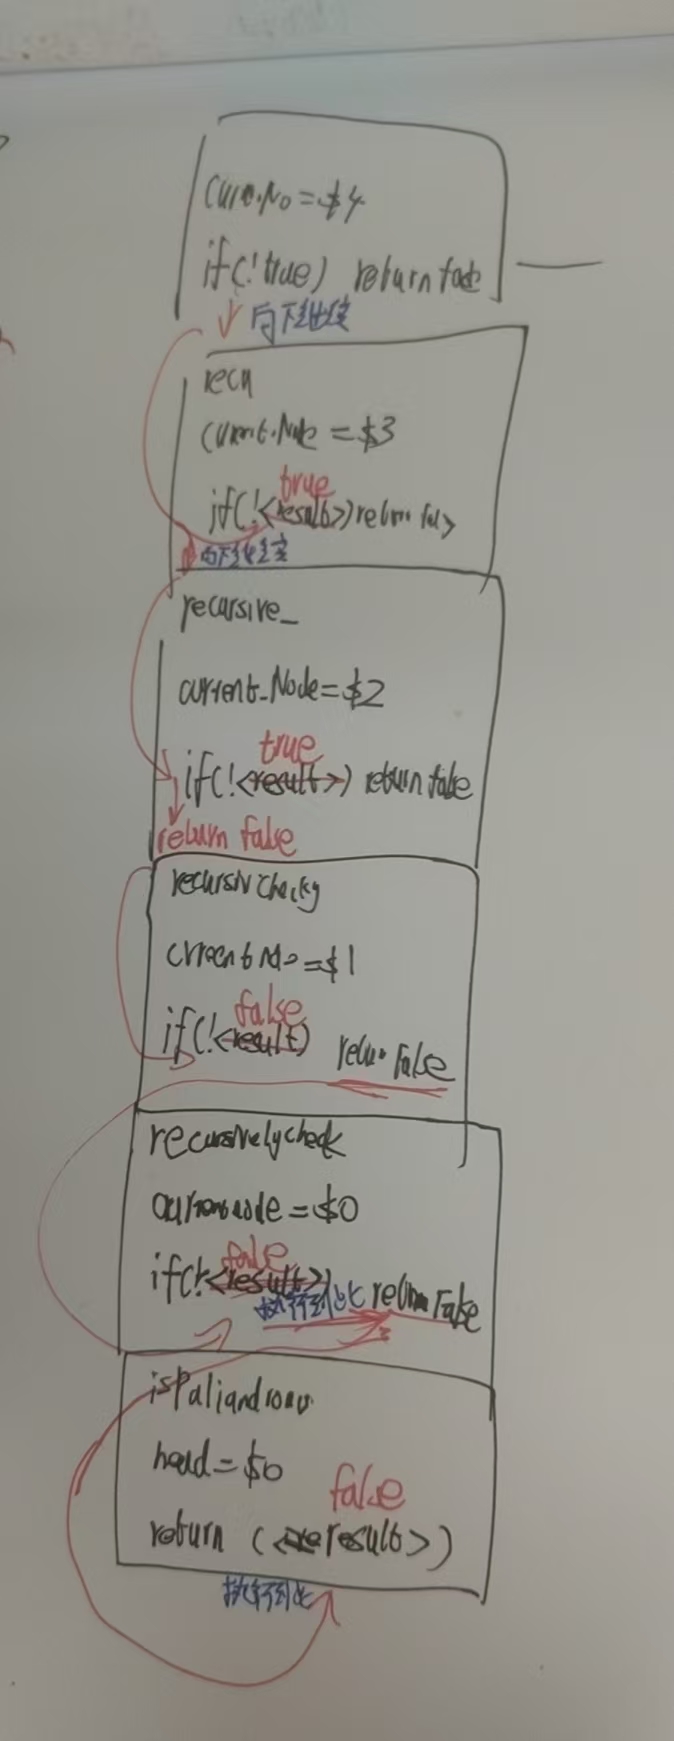 Curr.No = $4
if(!true) return false
向下继续
recu
Current.Node = $3
true
if(!<result>) return false
向下继续
recursive_
current_Node = $2
true
if(!<result>) return false
return false
recursivChecky
crrent No = $1
false
if(!<result) return False
recursivelycheck
currentnode = $0
false
if(!<result>) return False
执行到此
isPaliandrom
head = $0
false
return (<result>)
执行到此